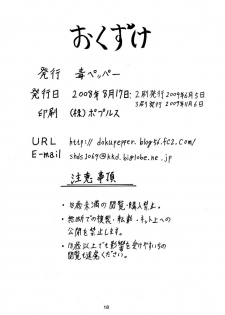 おくずけ
発行 毒ペッパー
発行日 2008年8月17日: 2刷発行2009年6月5日
3刷発行2009年11月6日
印刷 (株)ポプルス
URL http://dokupepper.blog56.fc2.com/
E-mail shds1069@kkd.biglobe.ne.jp
注意事項
・18歳未満の閲覧・購入禁止。
・無断での複製・転載・ネット上への
公開を禁止します。
・18歳以上でも影響を受けやすい方の
閲覧も遠慮ください。